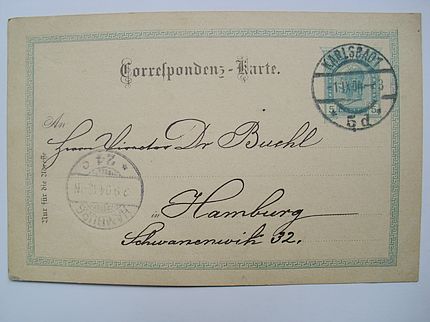 Correspondenz-Karte.
KARLSBAD 1
5 d
An
Herrn Director Dr Buehl
in Hamburg
Schwanenwik 32.
Nur für die Adresse
HAMBURG